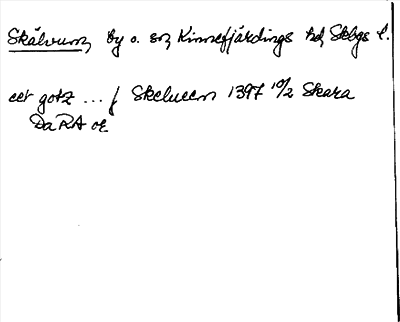 Skälvum, by o. sn, Kinnefjärdings hd, Skbgs l.
eet gotz ... j Skeluem 1397 10/2 Skara
DaRA or